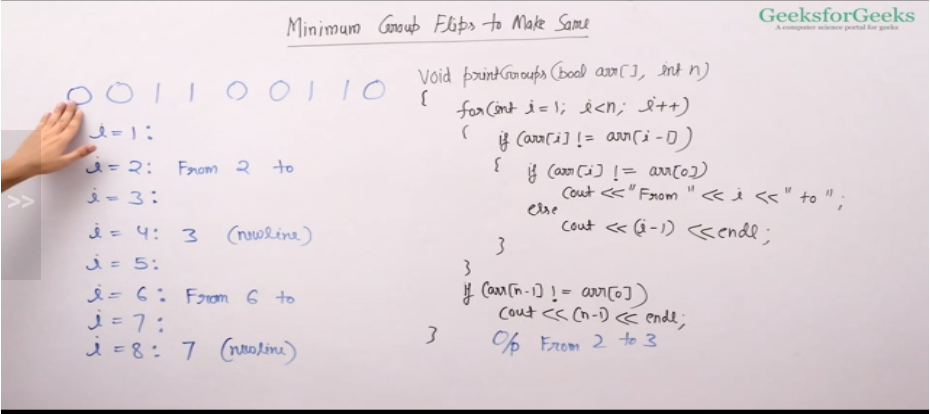 Minimum Group Flips to Make Same
GeeksforGeeks
A computer science portal for geeks
0 0 1 1 0 0 1 1 0
i = 1 :
i = 2 : From 2 to
i = 3 :
i = 4 : 3 (newline)
i = 5 :
i = 6 : From 6 to
i = 7 :
i = 8 : 7 (newline)
Void printGroups (bool arr[], int n)
{
for(int i = 1; i<n; i++)
{ if (arr[i] != arr[i-1])
{ if (arr[i] != arr[0])
cout << "From " << i << " to ";
else
cout << (i-1) << endl;
}
}
if (arr[n-1] != arr[0])
cout << (n-1) << endl;
}
O/p From 2 to 3
>>